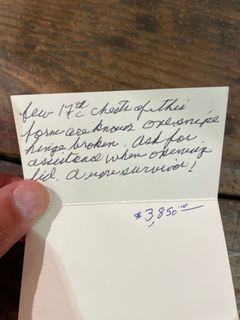 few 17th c chests of this
form are known one snipe
hinge broken. Ask for
assistance when opening
lid. A rare survivor!
$3,850.00